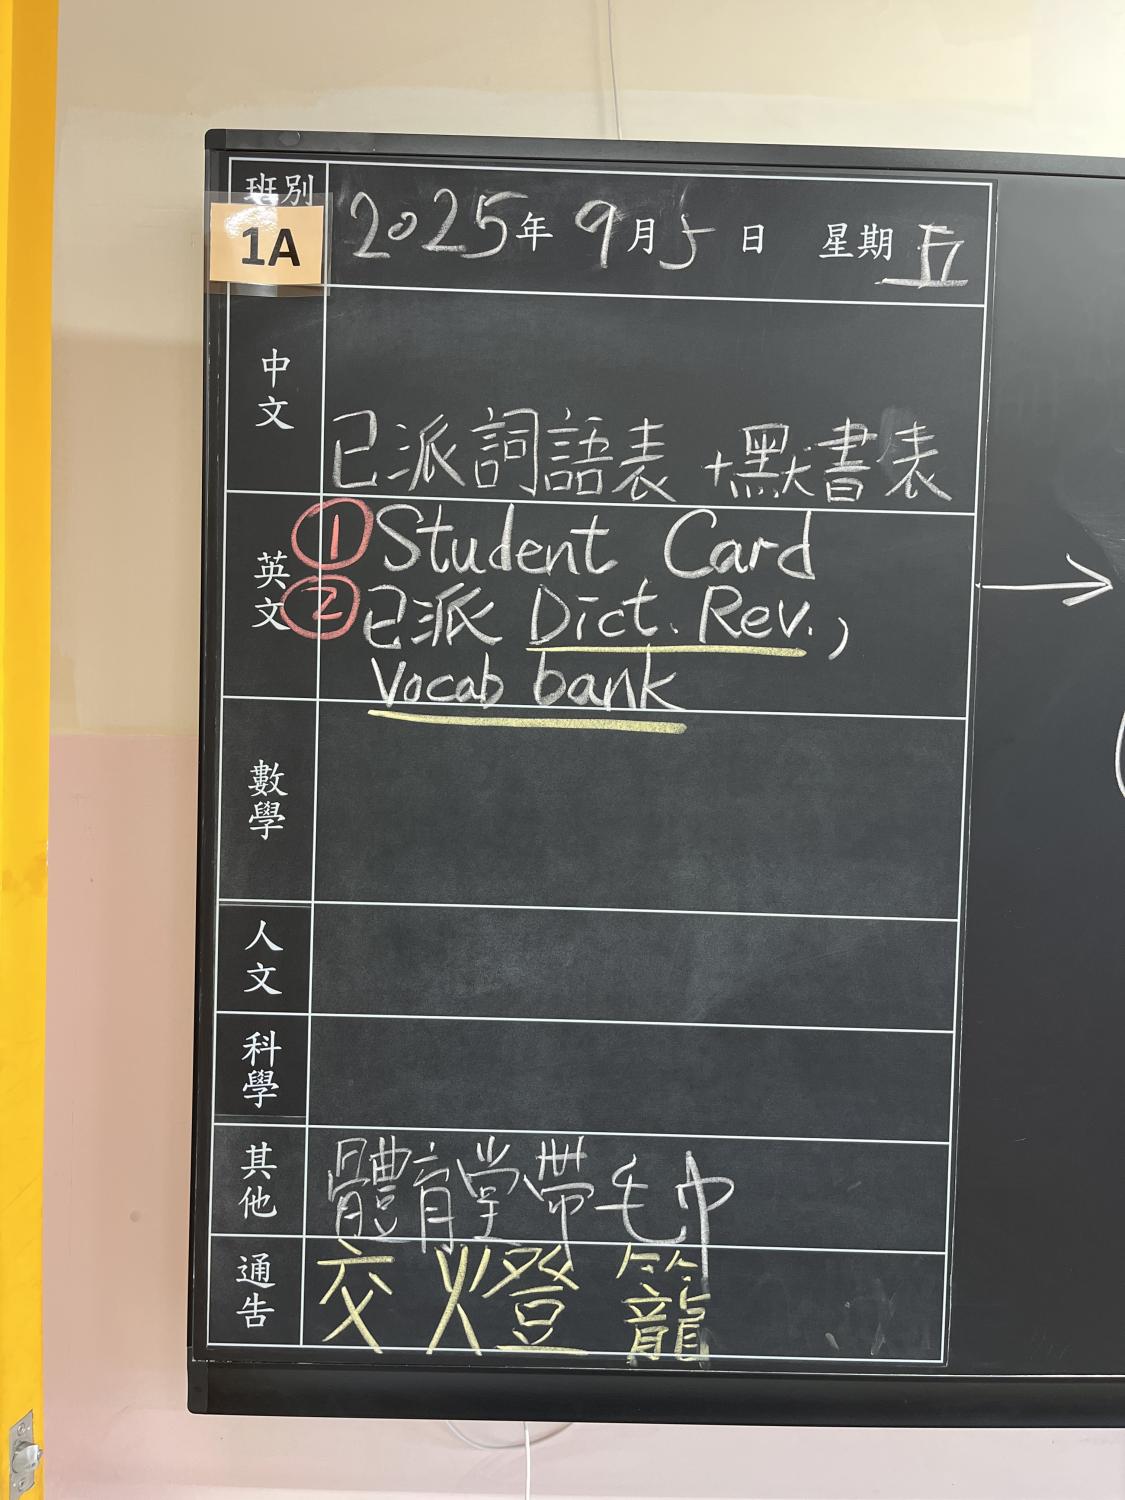 班別
1A
2025年 9月5日 星期五
中文
已派詞語表 +默書表
英文
① Student Card
② 已派 Dict. Rev.,
Vocab bank
數學
人文
科學
其他
體育堂帶毛巾
通告
交燈籠